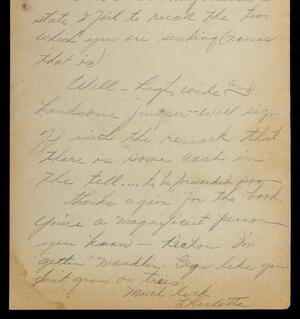 state I fail to recall the two
which you are sending (names
that is)
Well - high, wide and
handsome jumper - Will sign
off with the remark that
there is some cash in
the till... to be forwarded soon
Thanks again for the book.
You're a magnificent person
you know - Reckon I'm
gettin' maudlin. Guys like you
don't grow on trees.
Much luck
Charlotte